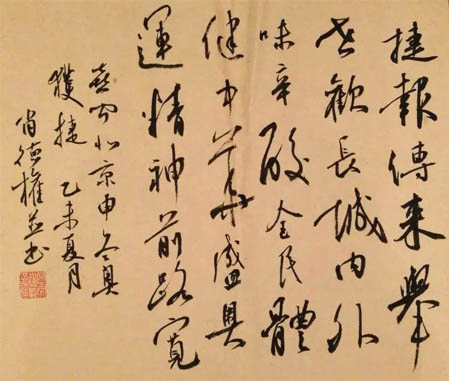 捷報傳来舉
世歡長城内外
味辛酸全民體
健中華盛奥
運精神前路寬
喜闻北京申冬奥
獲捷 乙未夏月
肖德權並书